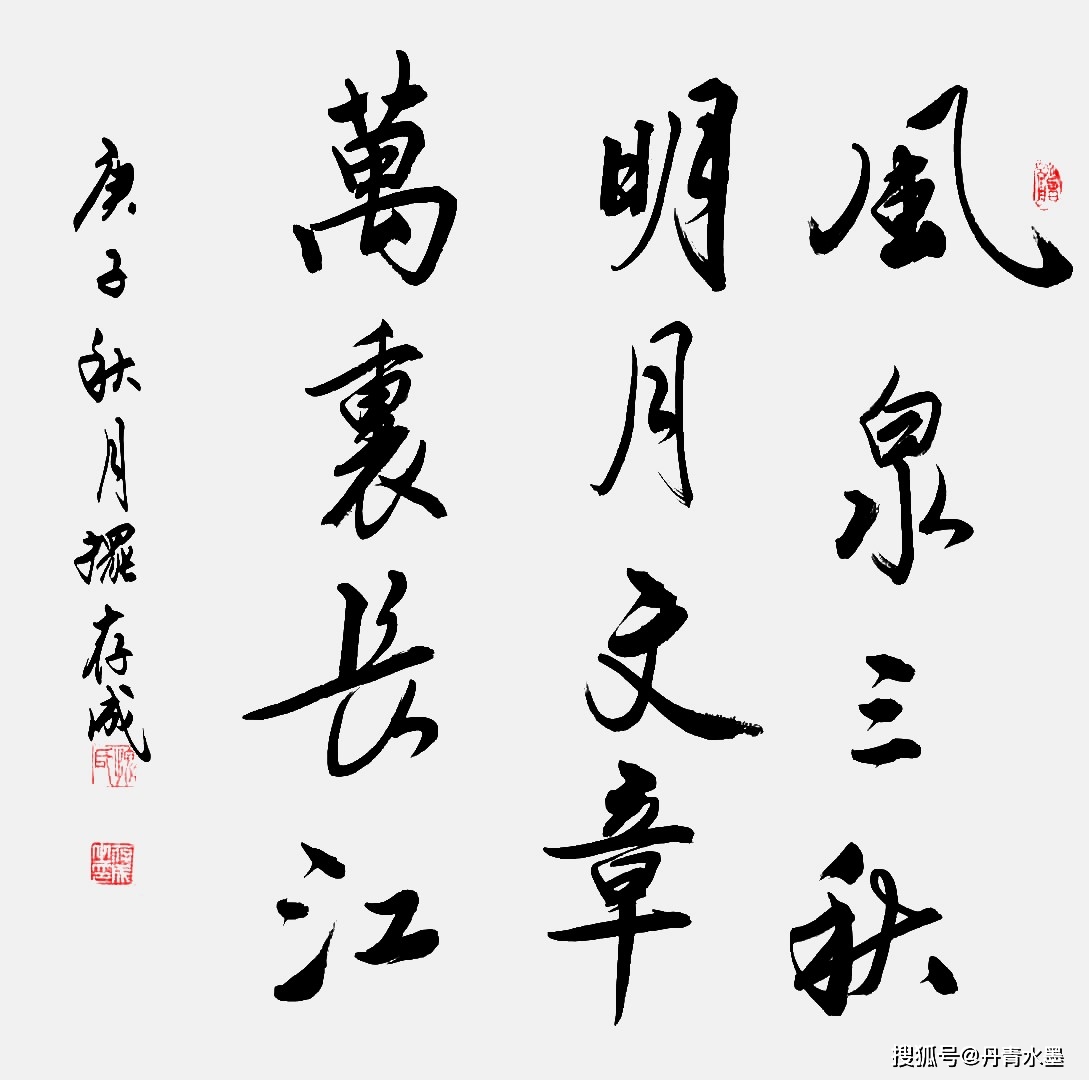 風泉三秋
明月文章
萬裏長江
庚子秋月擢存成
搜狐号@丹青水墨